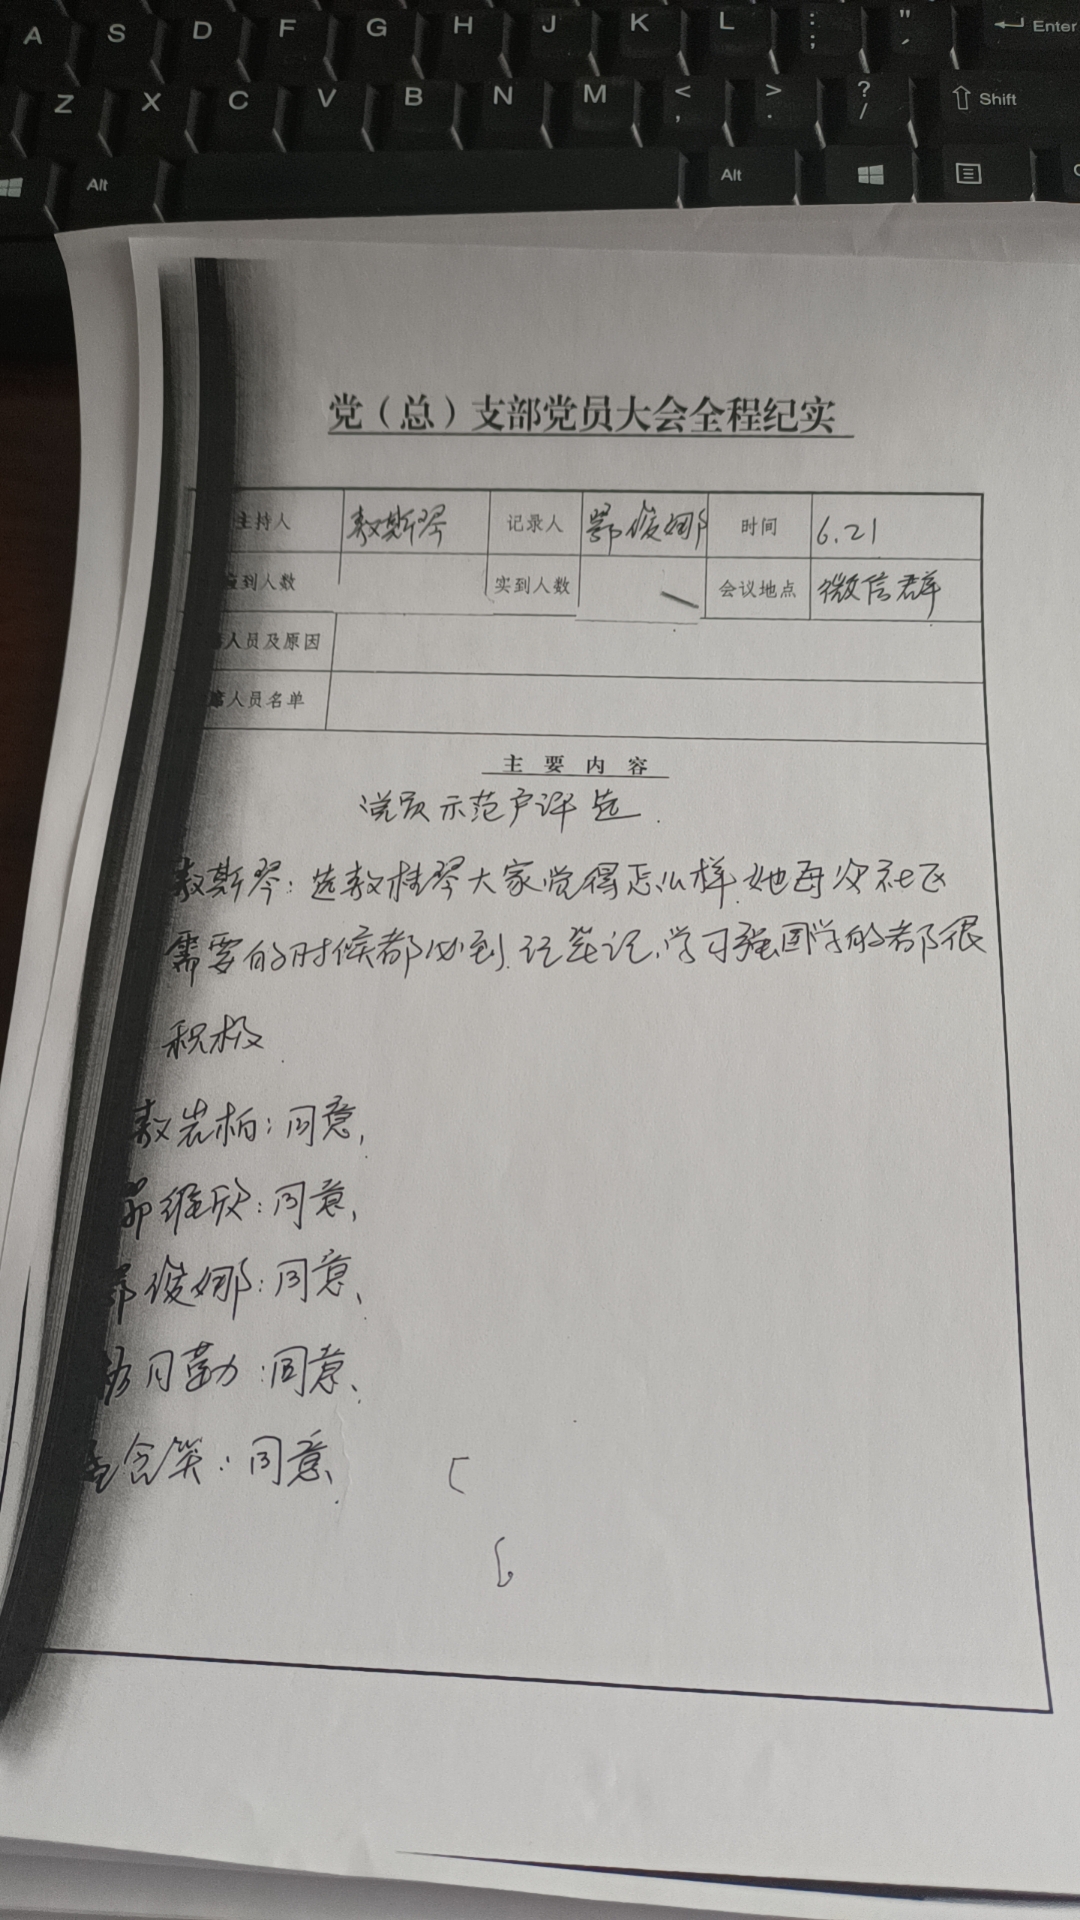 A S D F G H J K L : ; " ' Enter
Z X C V B N M < , > . ? / Shift
Alt Alt
党（总）支部党员大会全程纪实
主持人 敖斯琴 记录人 鄂俊娜 时间 6.21
到人数 实到人数 会议地点 微信群
人员及原因
席人员名单
主要内容
党员示范户评选.
敖斯琴:选敖桂琴大家觉得怎么样.她每次社区
需要的时候都必到.记笔记、学习强国学的都很
积极.
敖岩柏:同意,
维欣:同意,
鄂俊娜:同意、
月勤:同意、
含笑:同意、